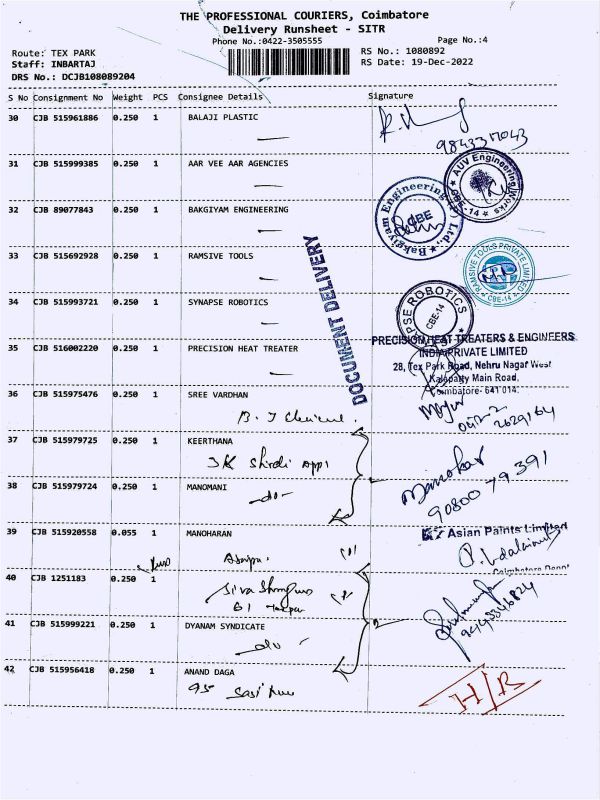 THE PROFESSIONAL COURIERS, Coimbatore
Delivery Runsheet - SITR
Phone No.:0422-3505555
Page No.:4
Route: TEX PARK
RS No.: 1080892
Staff: INBARTAJ
RS Date: 19-Dec-2022
DRS No.: DCJB108089204
S No Consignment No Weight PCS Consignee Details Signature
30 CJB 515961886 0.250 1 BALAJI PLASTIC
31 CJB 515999385 0.250 1 AAR VEE AAR AGENCIES
AUV Engineering Works
CBE-14
32 CJB 89077843 0.250 1 BAKGIYAM ENGINEERING
Bakgiyam Engineering Ltd.,
CBE
33 CJB 515692928 0.250 1 RAMSIVE TOOLS
RAMSIVE TOOLS PRIVATE LIMITED
CBE-14
DOCUMENT DELIVERY
34 CJB 515993721 0.250 1 SYNAPSE ROBOTICS
ROBOTICS
CBE-14
35 CJB 516002220 0.250 1 PRECISION HEAT TREATER
PRECISION HEAT TREATERS & ENGINEERS
INDIA PRIVATE LIMITED
28, Tex Park Road, Nehru Nagar West
Kalapatty Main Road,
Coimbatore- 641 014.
36 CJB 515975476 0.250 1 SREE VARDHAN
37 CJB 515979725 0.250 1 KEERTHANA
Manohar
90800 79391
38 CJB 515979724 0.250 1 MANOMANI
-do-
39 CJB 515920558 0.055 1 MANOHARAN
Asian Paints Limited
Coimbatore Depot
40 CJB 1251183 0.250 1
41 CJB 515999221 0.250 1 DYANAM SYNDICATE
42 CJB 515956418 0.250 1 ANAND DAGA
H/R